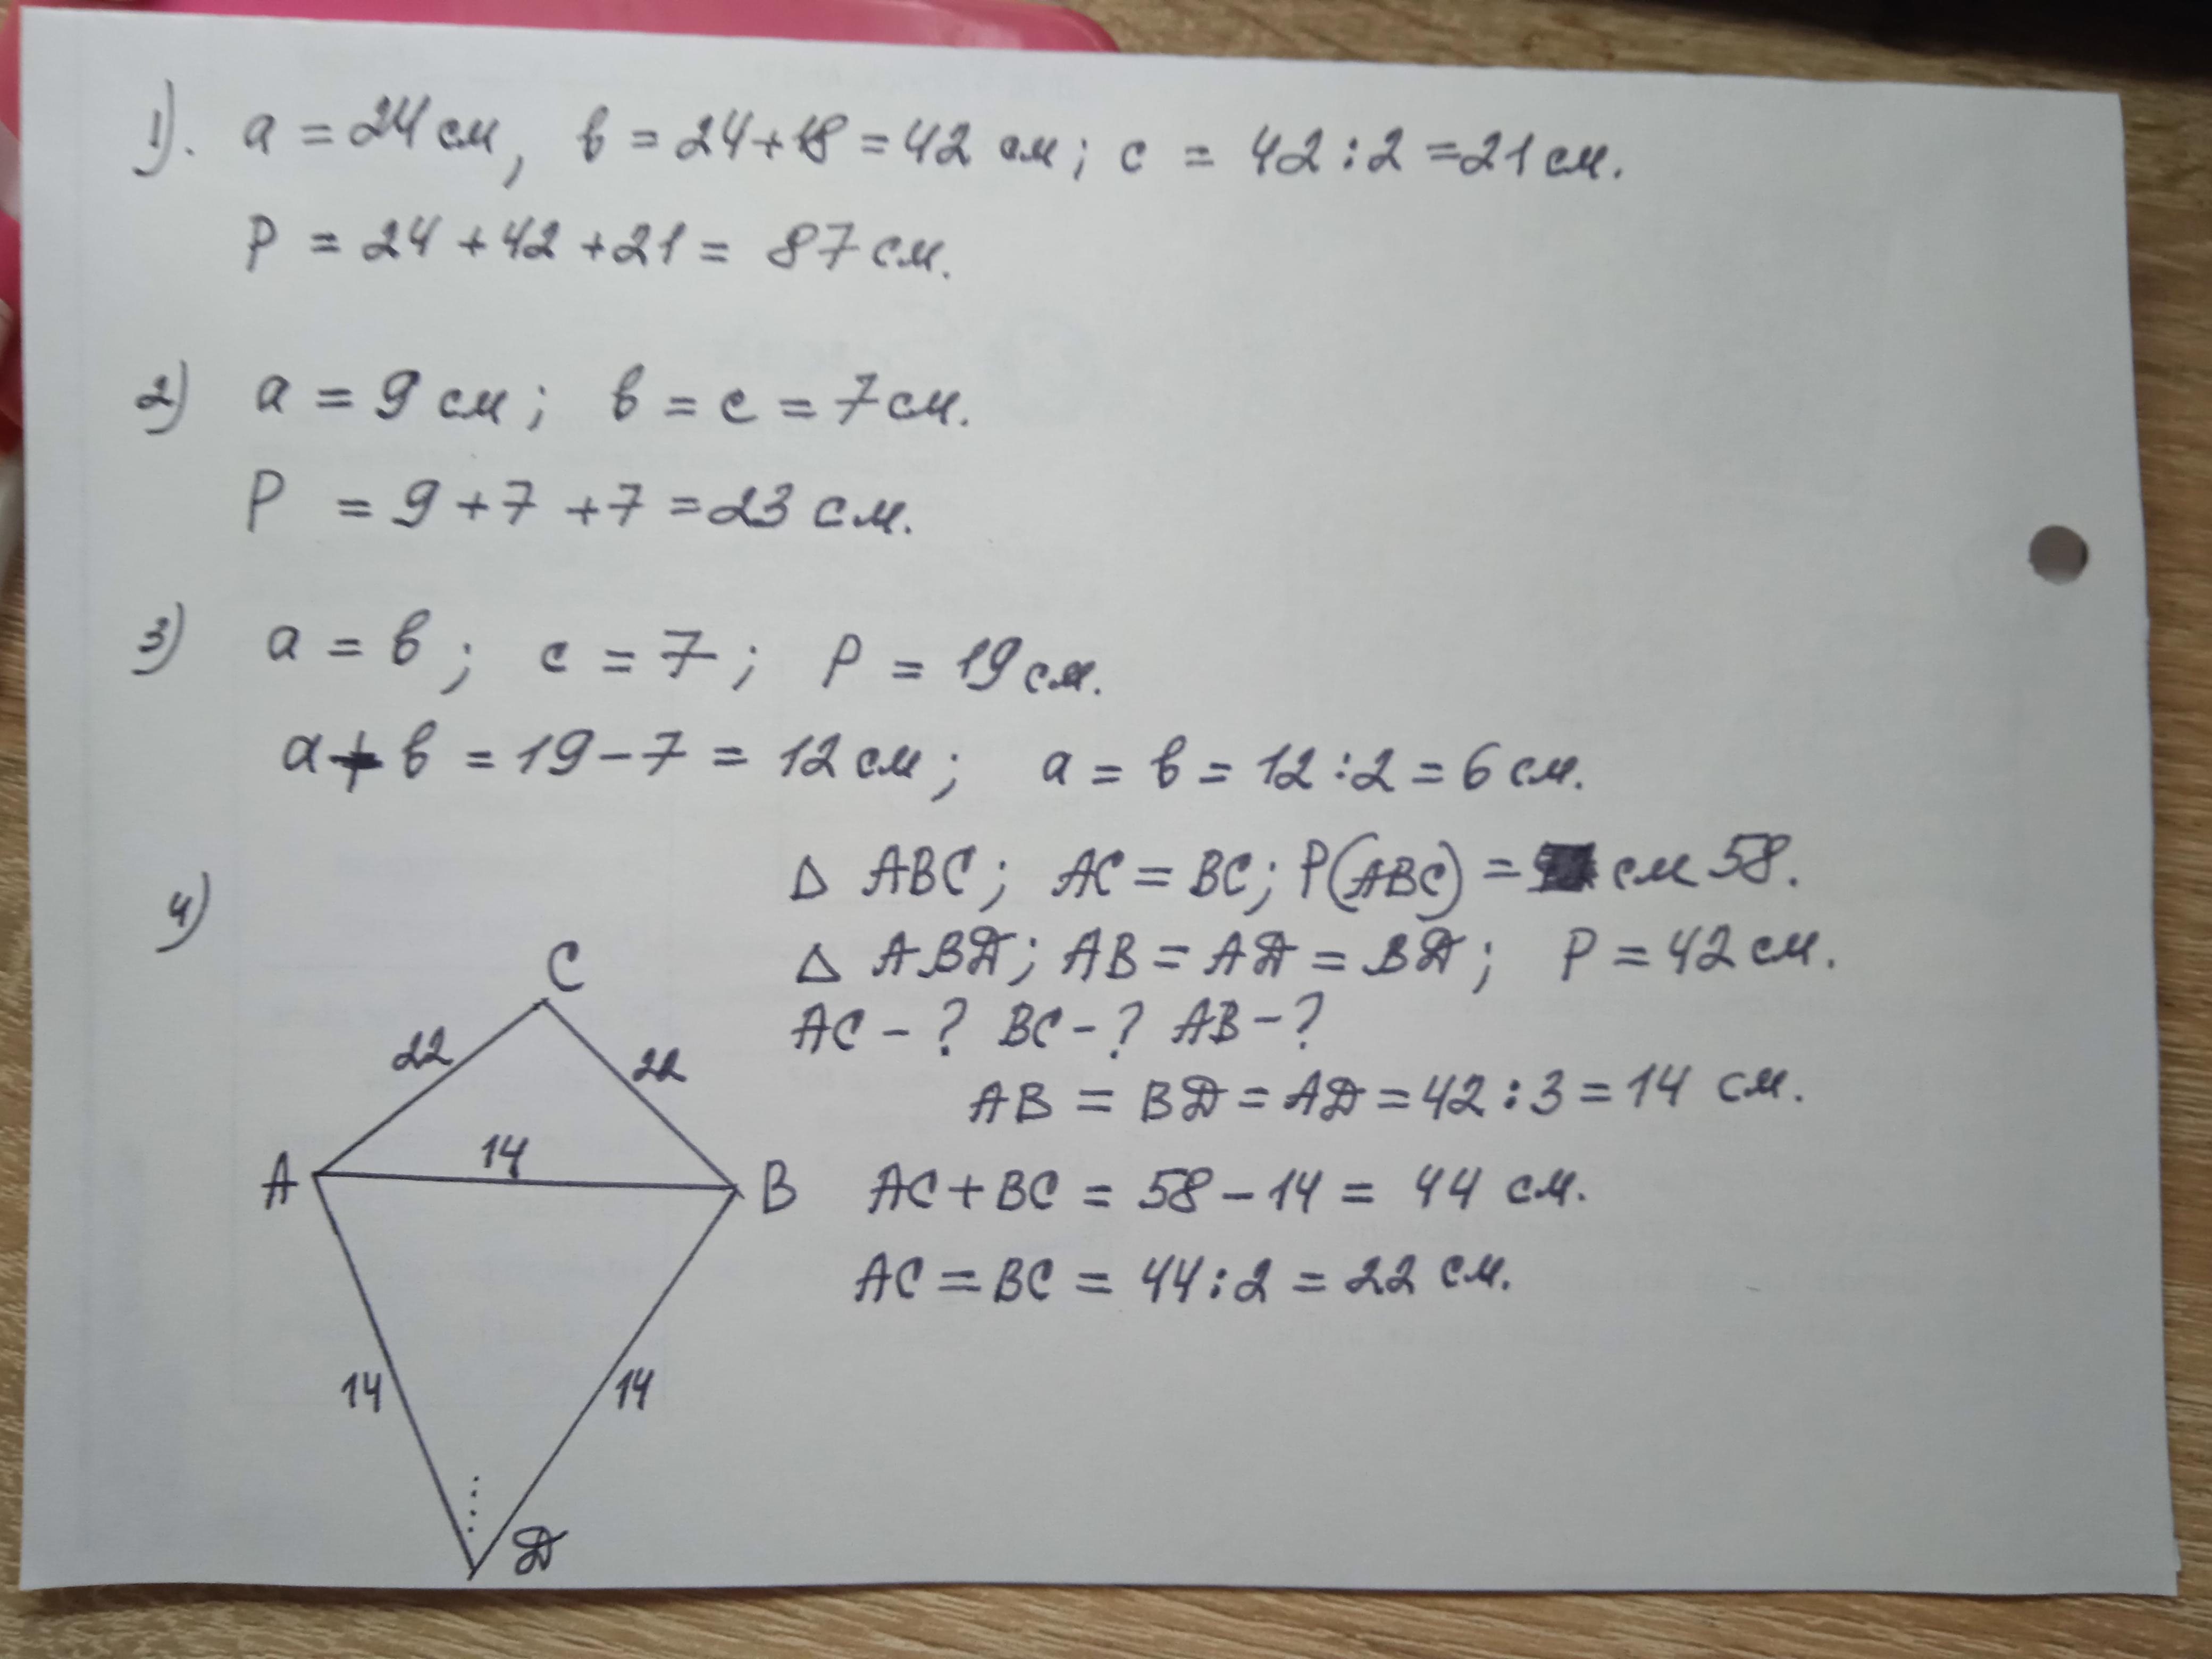 1). a = 24 см, в = 24+18 = 42 см; c = 42 : 2 = 21 см.
P = 24 + 42 + 21 = 87 см.
2) a = 9 см; в = c = 7 см.
P = 9 + 7 + 7 = 23 см.
3) a = в; c = 7; P = 19 см.
a + в = 19 - 7 = 12 см; a = в = 12 : 2 = 6 см.
4)
Δ ABC; AC = BC; P(ABC) = см 58.
Δ ABД; AB = AД = BД; P = 42 см.
AC - ? BC - ? AB - ?
AB = BД = AД = 42 : 3 = 14 см.
AC + BC = 58 - 14 = 44 см.
AC = BC = 44 : 2 = 22 см.
C
22 22
14
A B
14 14
Д